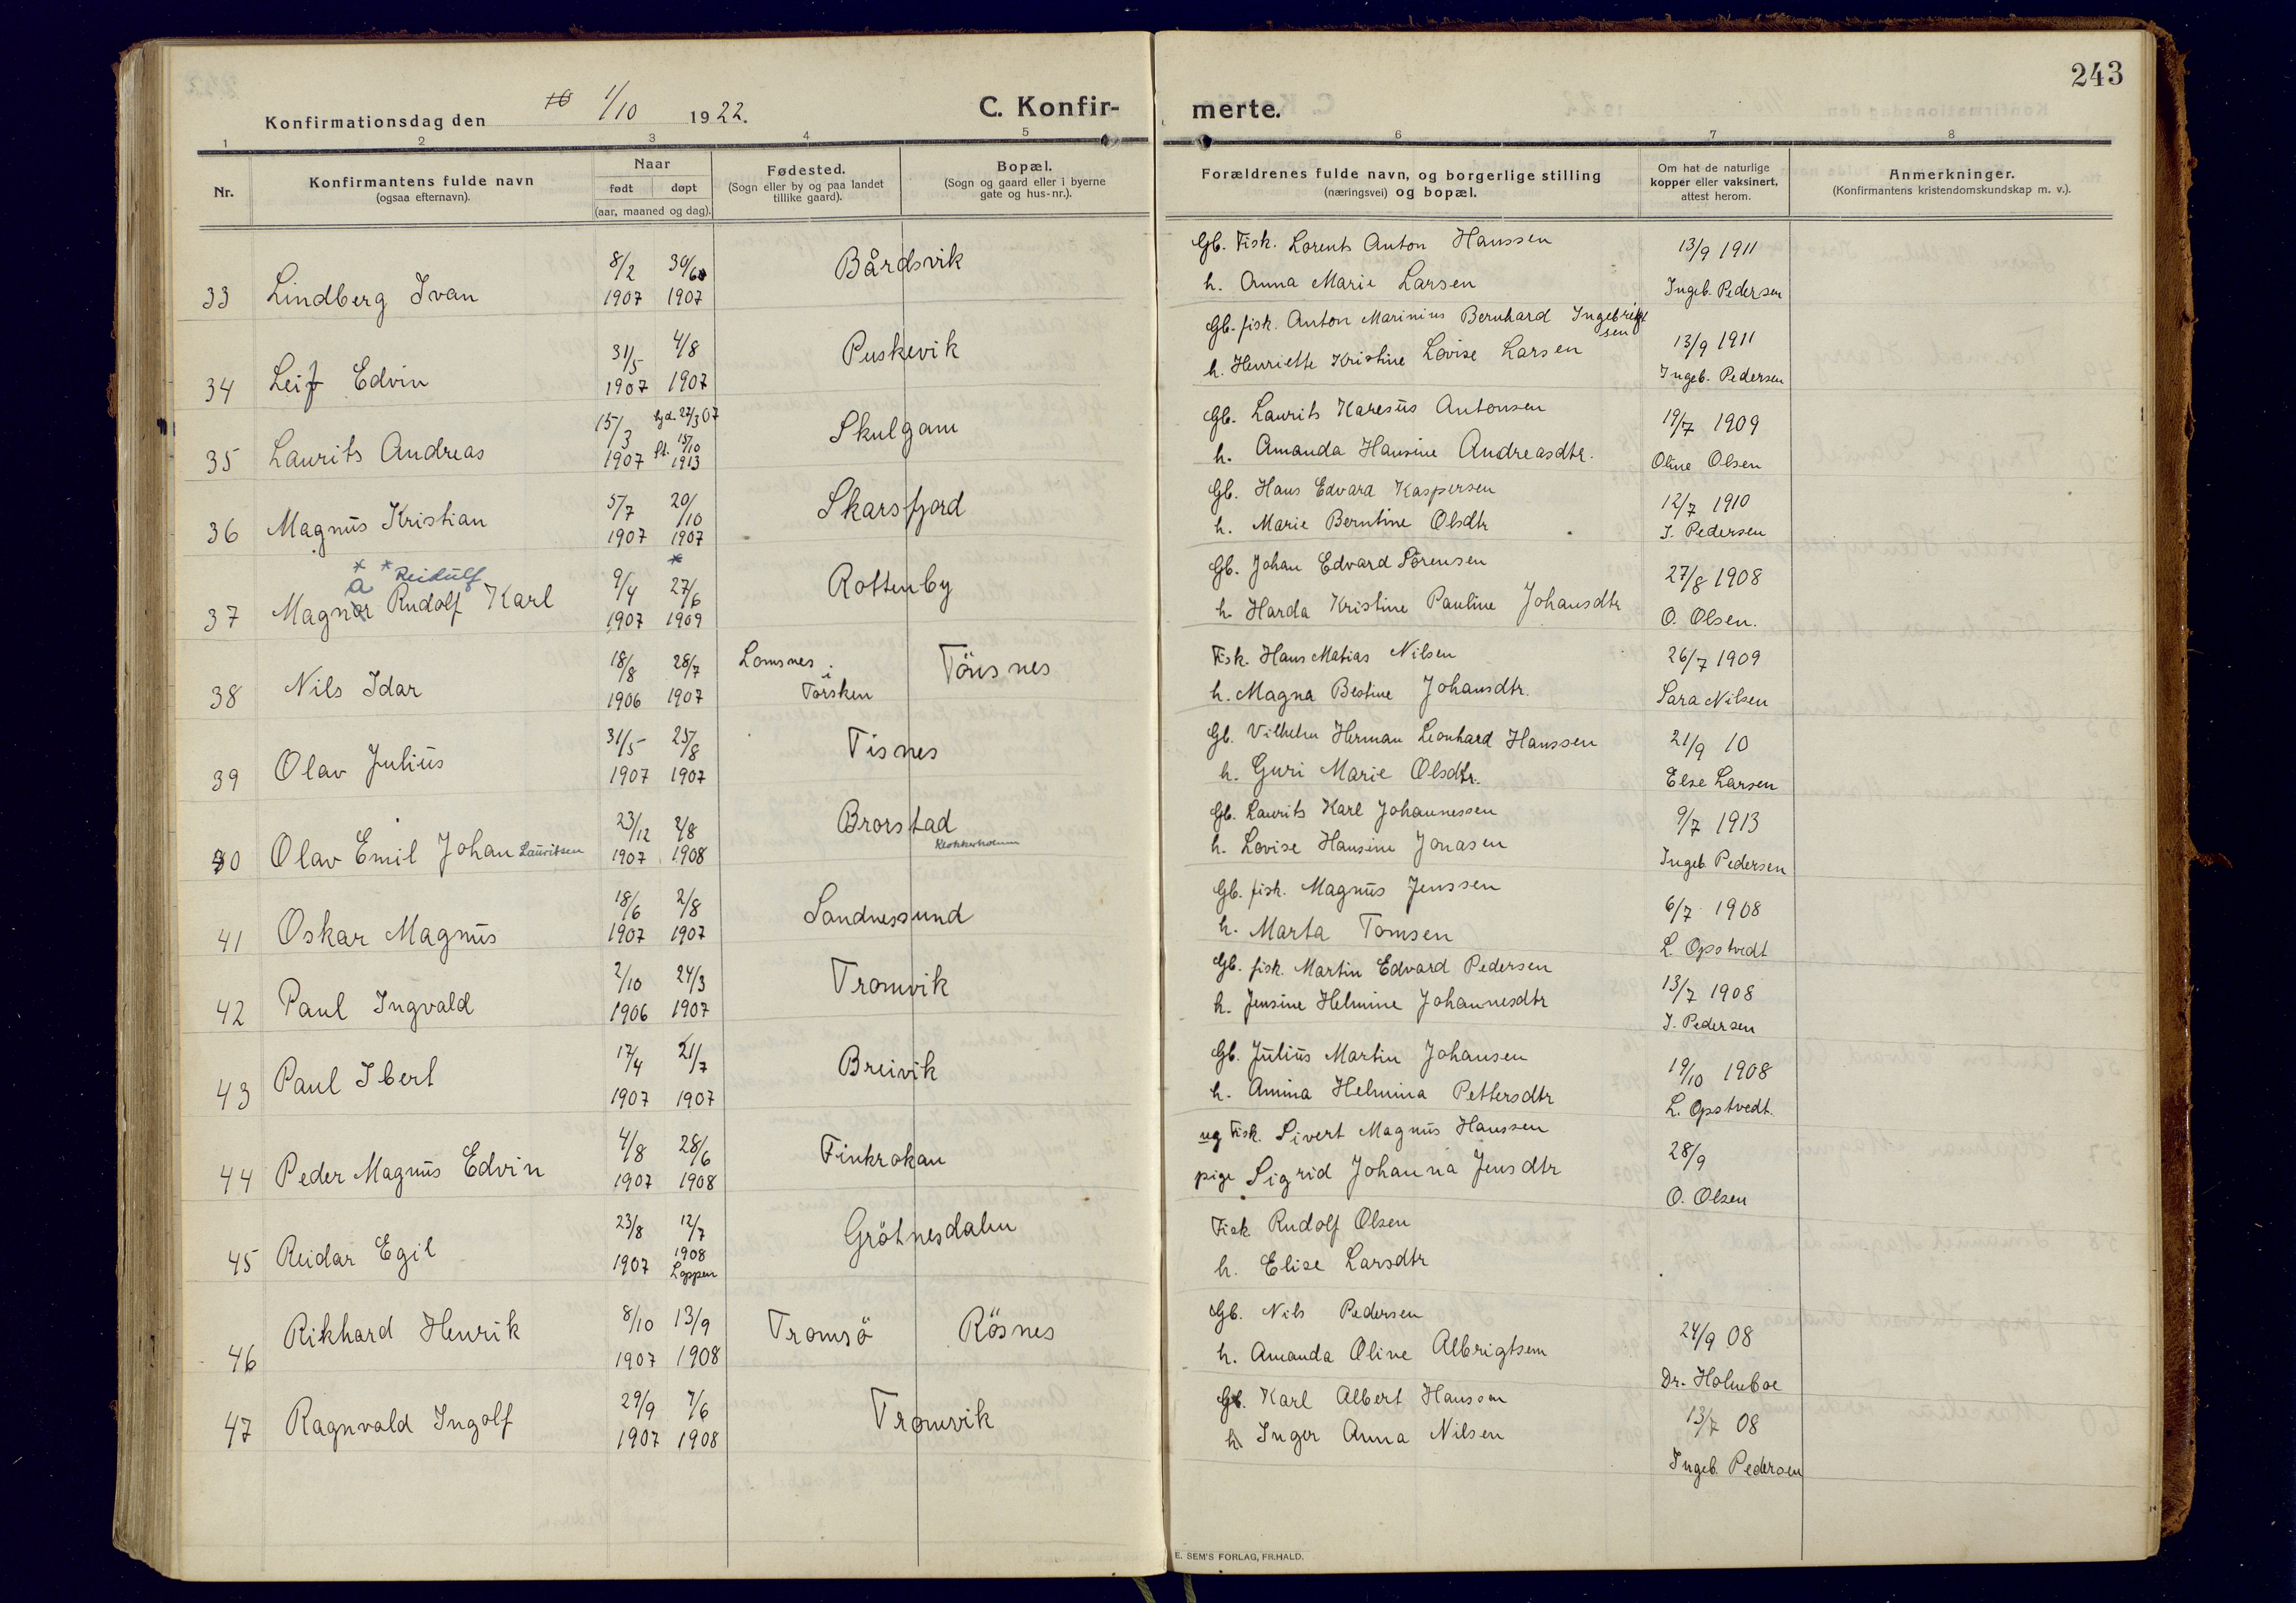 243
Konfirmationsdag den 1/10 1922.
C. Konfir-
merte.
1 2 3 4 5 6 7 8
Nr.
Konfirmantens fulde navn
(ogsaa efternavn).
Naar
født døpt
(aar, maaned og dag).
Fødested.
(Sogn eller by og paa landet
tillike gaard).
Bopæl.
(Sogn og gaard eller i byerne
gate og hus-nr.).
Forældrenes fulde navn, og borgerlige stilling
(næringsvei) og bopæl.
Om hat de naturlige
kopper eller vaksinert,
attest herom.
Anmerkninger.
(Konfirmantens kristendomskundskap m. v.).
8/2 30/6 Bårdsvik Gb. Fisk. Lorents Anton Hanssen 13/9 1911
33 Lindberg Ivan 1907 1907 h. Anna Marie Larsen Ingeb. Pedersen
31/5 4/8 Puskevik Gb. fisk. Anton Marinius Bernhard Ingebrigt
sen 13/9 1911
34 Leif Edvin 1907 1907 h. Henriette Kristine Lovise Larsen Ingeb. Pedersen
15/3 hjd. 27/3 07 Skulgam Gb. Laurits Karesius Antonsen 19/7 1909
35 Laurits Andreas 1907 15/10 1913 h. Amanda Hansine Andreasdtr. Oline Olsen
5/7 20/10 Skarsfjord Gb. Hans Edvard Kaspersen 12/7 1910
36 Magnus Kristian 1907 1907 h. Marie Berntine Olsdtr I. Pedersen
* * Reidulf *
a 9/4 27/6 Rottenby Gb. Johan Edvard Sörensen 27/8 1908
37 Magnar Rudolf Karl 1907 1909 h. Harda Kristine Pauline Johansdtr O. Olsen.
18/8 28/7 Lomsnes i Tönsnes Fisk. Hans Matias Nilsen 26/7 1909
38 Nils Idar 1906 1907 Torsken h. Magna Bestine Johansdtr. Sara Nilsen
31/5 25/8 Tisnes Gb. Vilhelm Herman Leonhard Hanssen 21/9 10
39 Olav Julius 1907 1907 h. Guri Marie Olsdtr. Else Larsen
23/12 2/8 Brorstad Gb. Laurits Karl Johannessen 9/7 1913
40 Olav Emil Johan Lauritsen 1907 1908 h. Lovise Hansine Jonasen Ingeb. Pedersen
18/6 2/8 Sandnessund Gb. fisk. Magnus Jenssen 6/7 1908
41 Oskar Magnus 1907 1907 h. Marta Tomsen L. Opstvedt
2/10 24/3 Tromvik Gb. fisk. Martin Edvard Pedersen 13/7 1908
42 Paul Ingvald 1906 1907 h. Jensine Helmine Johannesdtr I. Pedersen
17/4 21/7 Breivik Gb. Julius Martin Johansen 19/10 1908
43 Paul Ibert 1907 1907 h. Amina Helmina Pettersdtr L. Opstvedt.
4/8 28/6 Finkrokan ug Fisk. Sivert Magnus Hanssen 28/9
44 Peder Magnus Edvin 1907 1908 pige Sigrid Johanna Jensdtr O. Olsen
23/8 12/7 Grötnesdalen Fisk. Rudolf Olsen
45 Reidar Egil 1907 1908 Loppen h. Elise Larsdtr
8/10 13/9 Tromsö Rösnes Gb. Nils Pedersen 24/9 08
46 Rikhard Henrik 1907 1908 h. Amanda Oline Albrigtsen Dr. Holmboe
29/9 7/6 Tromvik Gb. Karl Albert Hanssen 13/7 08
47 Ragnvald Ingolf 1907 1908 h. Inger Anna Nilsen Ingeb. Pedersen
E. SEM'S FORLAG, FR.HALD.